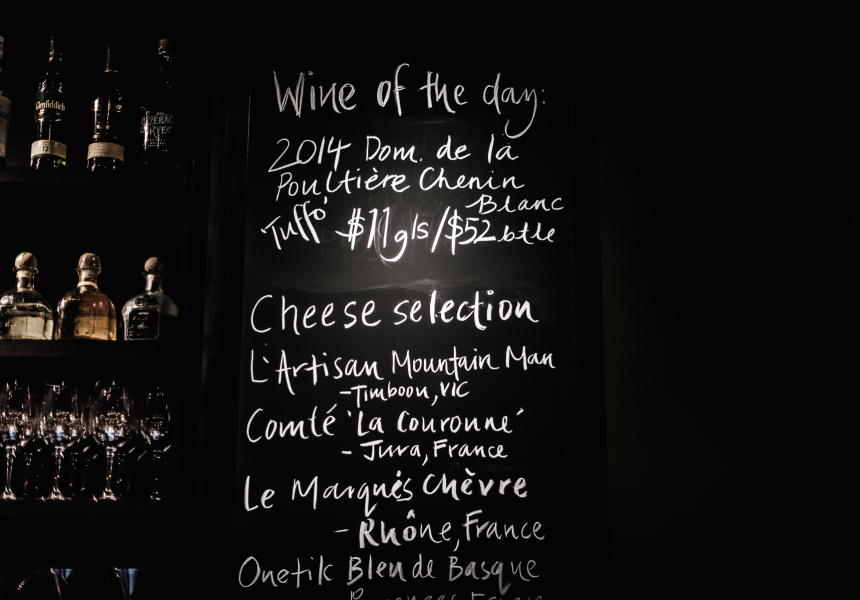 Wine of the day:
2014 Dom. de la
Poultière Chenin
Blanc
Tuffo' $11gls/$52btle
Cheese selection
L'Artisan Mountain Man
-Timboon, VIC
Comté 'La Couronne'
- Jura, France
Le Marquis Chèvre
- Rhône, France
Onetik Bleu de Basque
Glenfiddich
12
SAZERAC
RYE